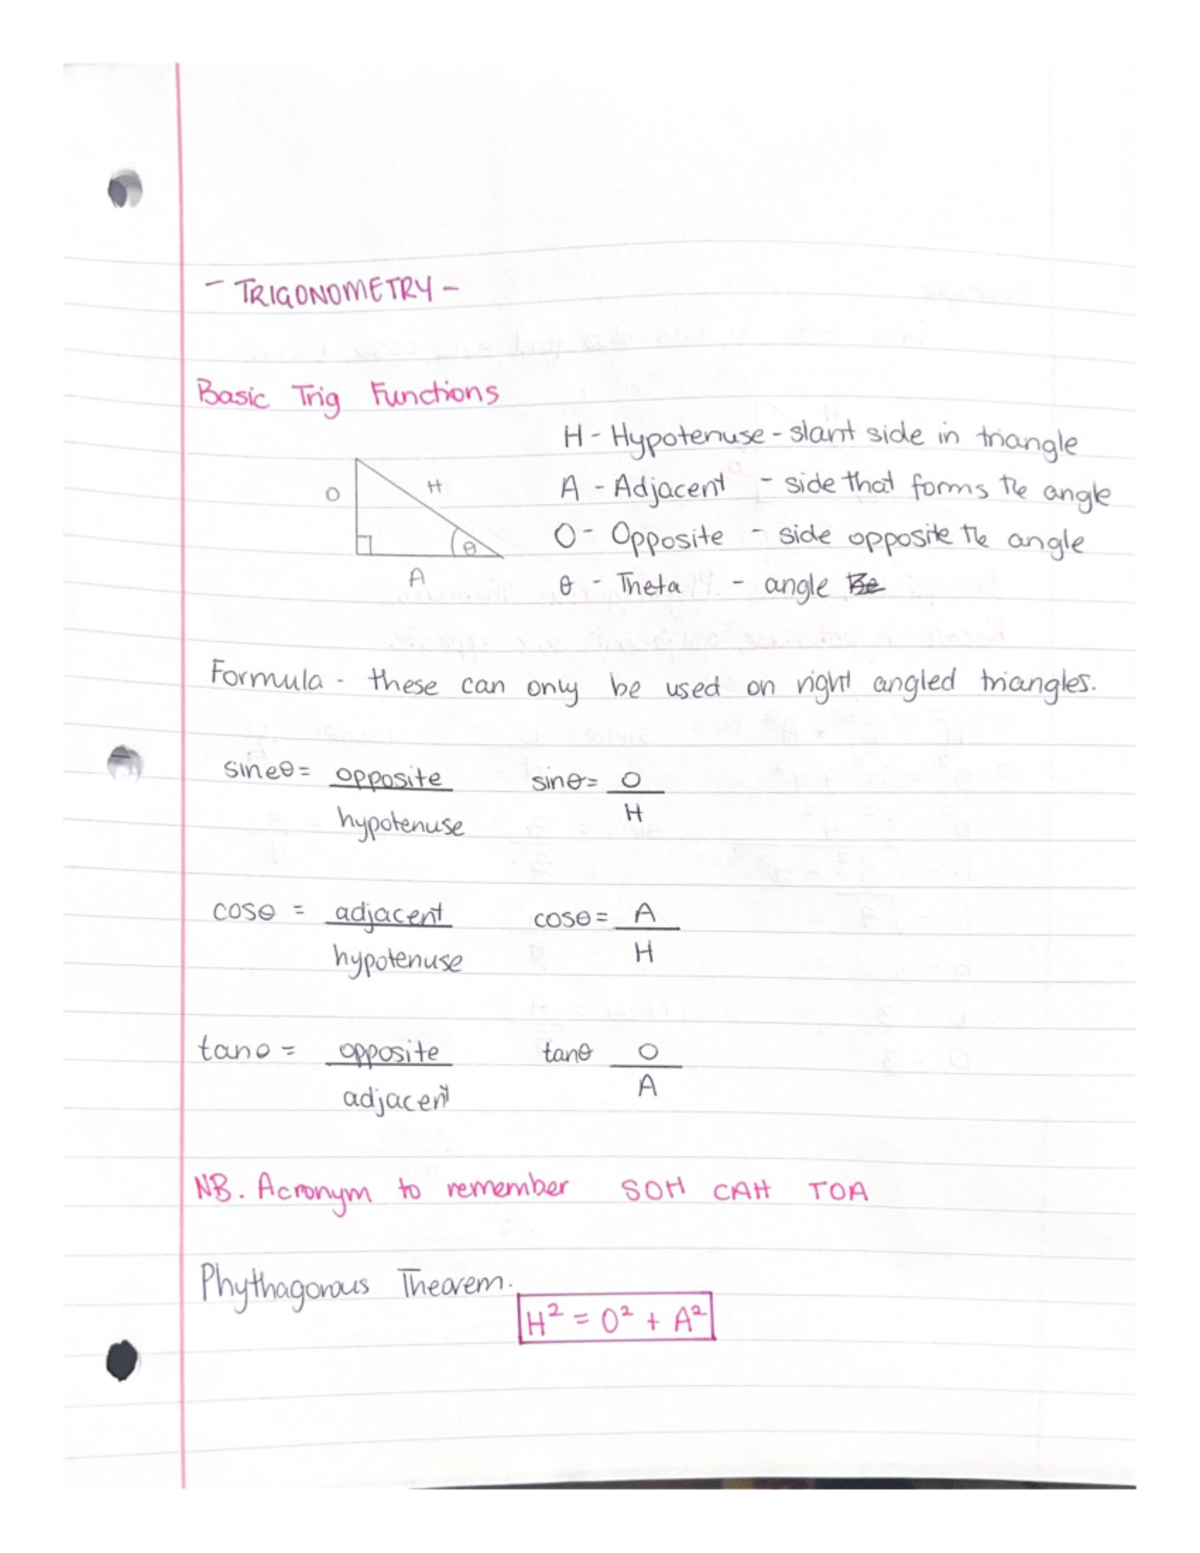 - TRIGONOMETRY -
Basic Trig Functions
H - Hypotenuse - slant side in triangle
O
H
A - Adjacent - side that forms the angle
O - Opposite - side opposite the angle
θ
A
θ - Theta - angle
Formula - these can only be used on right angled triangles.
sineθ = opposite
hypotenuse
sinθ = O
H
cosθ = adjacent
hypotenuse
cosθ = A
H
tanθ = opposite
adjacent
tanθ O
A
NB. Acronym to remember SOH CAH TOA
Phythagorous Theorem.
H² = O² + A²